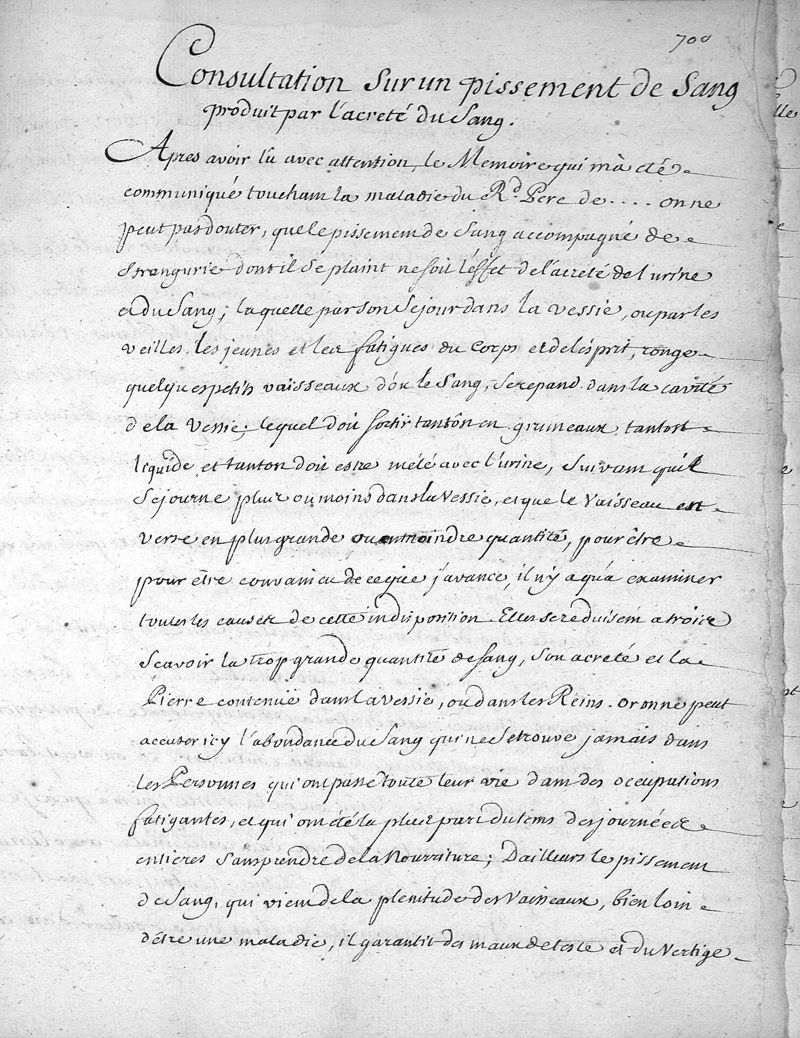 700
Consultation Sur un pissement de Sang
produit par l'acreté du Sang.
Apres avoir lû avec attention, le Memoire qui m'a eté
communiqué touchant la maladie du Rd. Pere de .... on ne
peut pas douter, que le pissement de Sang accompagné de
Strangurie dont il se plaint ne soit l'effet de l'acreté de l'urine
et du Sang; laquelle par son Sejour dans la vessie, ou par les
veilles, les jeunes et les fatigues du Corps et de l'esprit, ronge
quelques petits vaisseaux d'où le Sang, se repand dans la cavité
de la Vessie; lequel doit sortir tantôn en grumeaux, tantost
liquide et tanton doit estre mélé avec l'urine, Suivant qu'il
Sejourne plus ou moins dans la Vessie, et que le Vaisseau est
verse en plus grande ou moindre quantité, pour être
pour être convaincu de ce que j'avance, il n'y a qu'a examiner
toutes les causes de cette indisposition. Elles se reduisent a trois
Scavoir la trop grande quantité de sang, Son acreté et la
Pierre contenuë dans la vessie, ou dans les Reins. or on ne peut
accuser icy l'abondance du Sang qui ne se trouve jamais dans
les Personnes qui ont passé toute leur vie dans des occupations
fatigantes, et qui ont été la plus part du tems des journées
entieres Sans prendre de la Nourriture; D'ailleurs le pissement
de Sang, qui vient de la plenitude des Vaisseaux, bien loin
d'être une maladie, il garantit des maux de teste et du Vertige